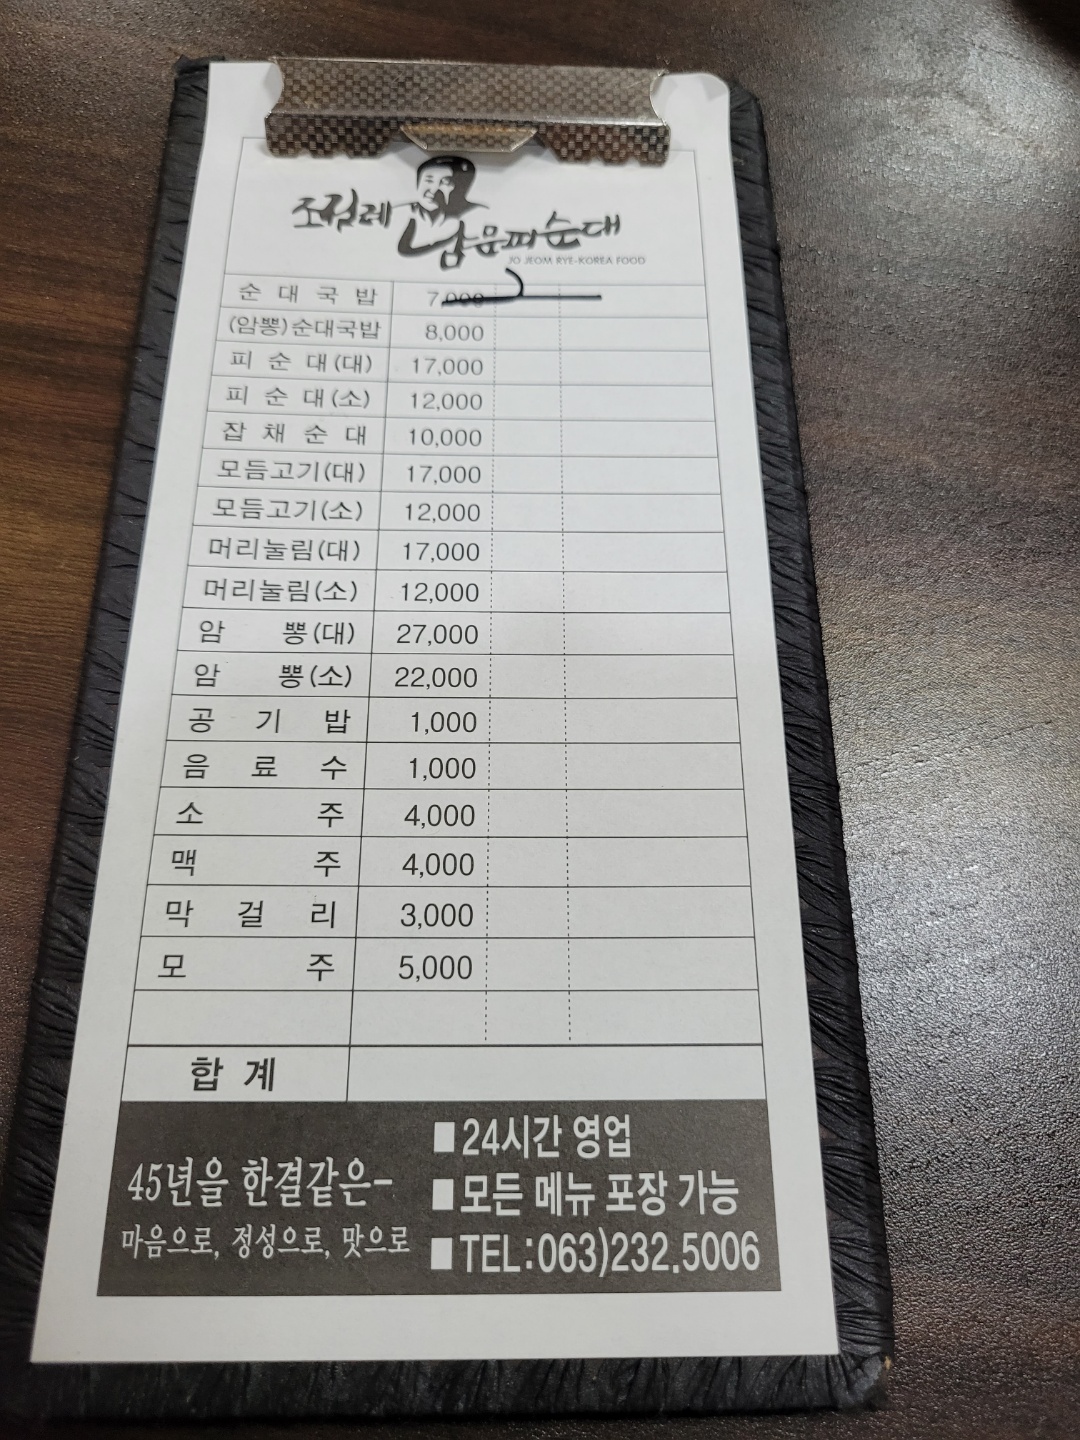 조점례
남문피순대
JO JEOM RYE-KOREA FOOD
순 대 국 밥 7,000
(암뽕)순대국밥 8,000
피 순 대(대) 17,000
피 순 대(소) 12,000
잡 채 순 대 10,000
모듬고기(대) 17,000
모듬고기(소) 12,000
머리눌림(대) 17,000
머리눌림(소) 12,000
암 뽕(대) 27,000
암 뽕(소) 22,000
공 기 밥 1,000
음 료 수 1,000
소 주 4,000
맥 주 4,000
막 걸 리 3,000
모 주 5,000
합 계
45년을 한결같은-
마음으로, 정성으로, 맛으로
■24시간 영업
■모든 메뉴 포장 가능
■TEL:063)232.5006